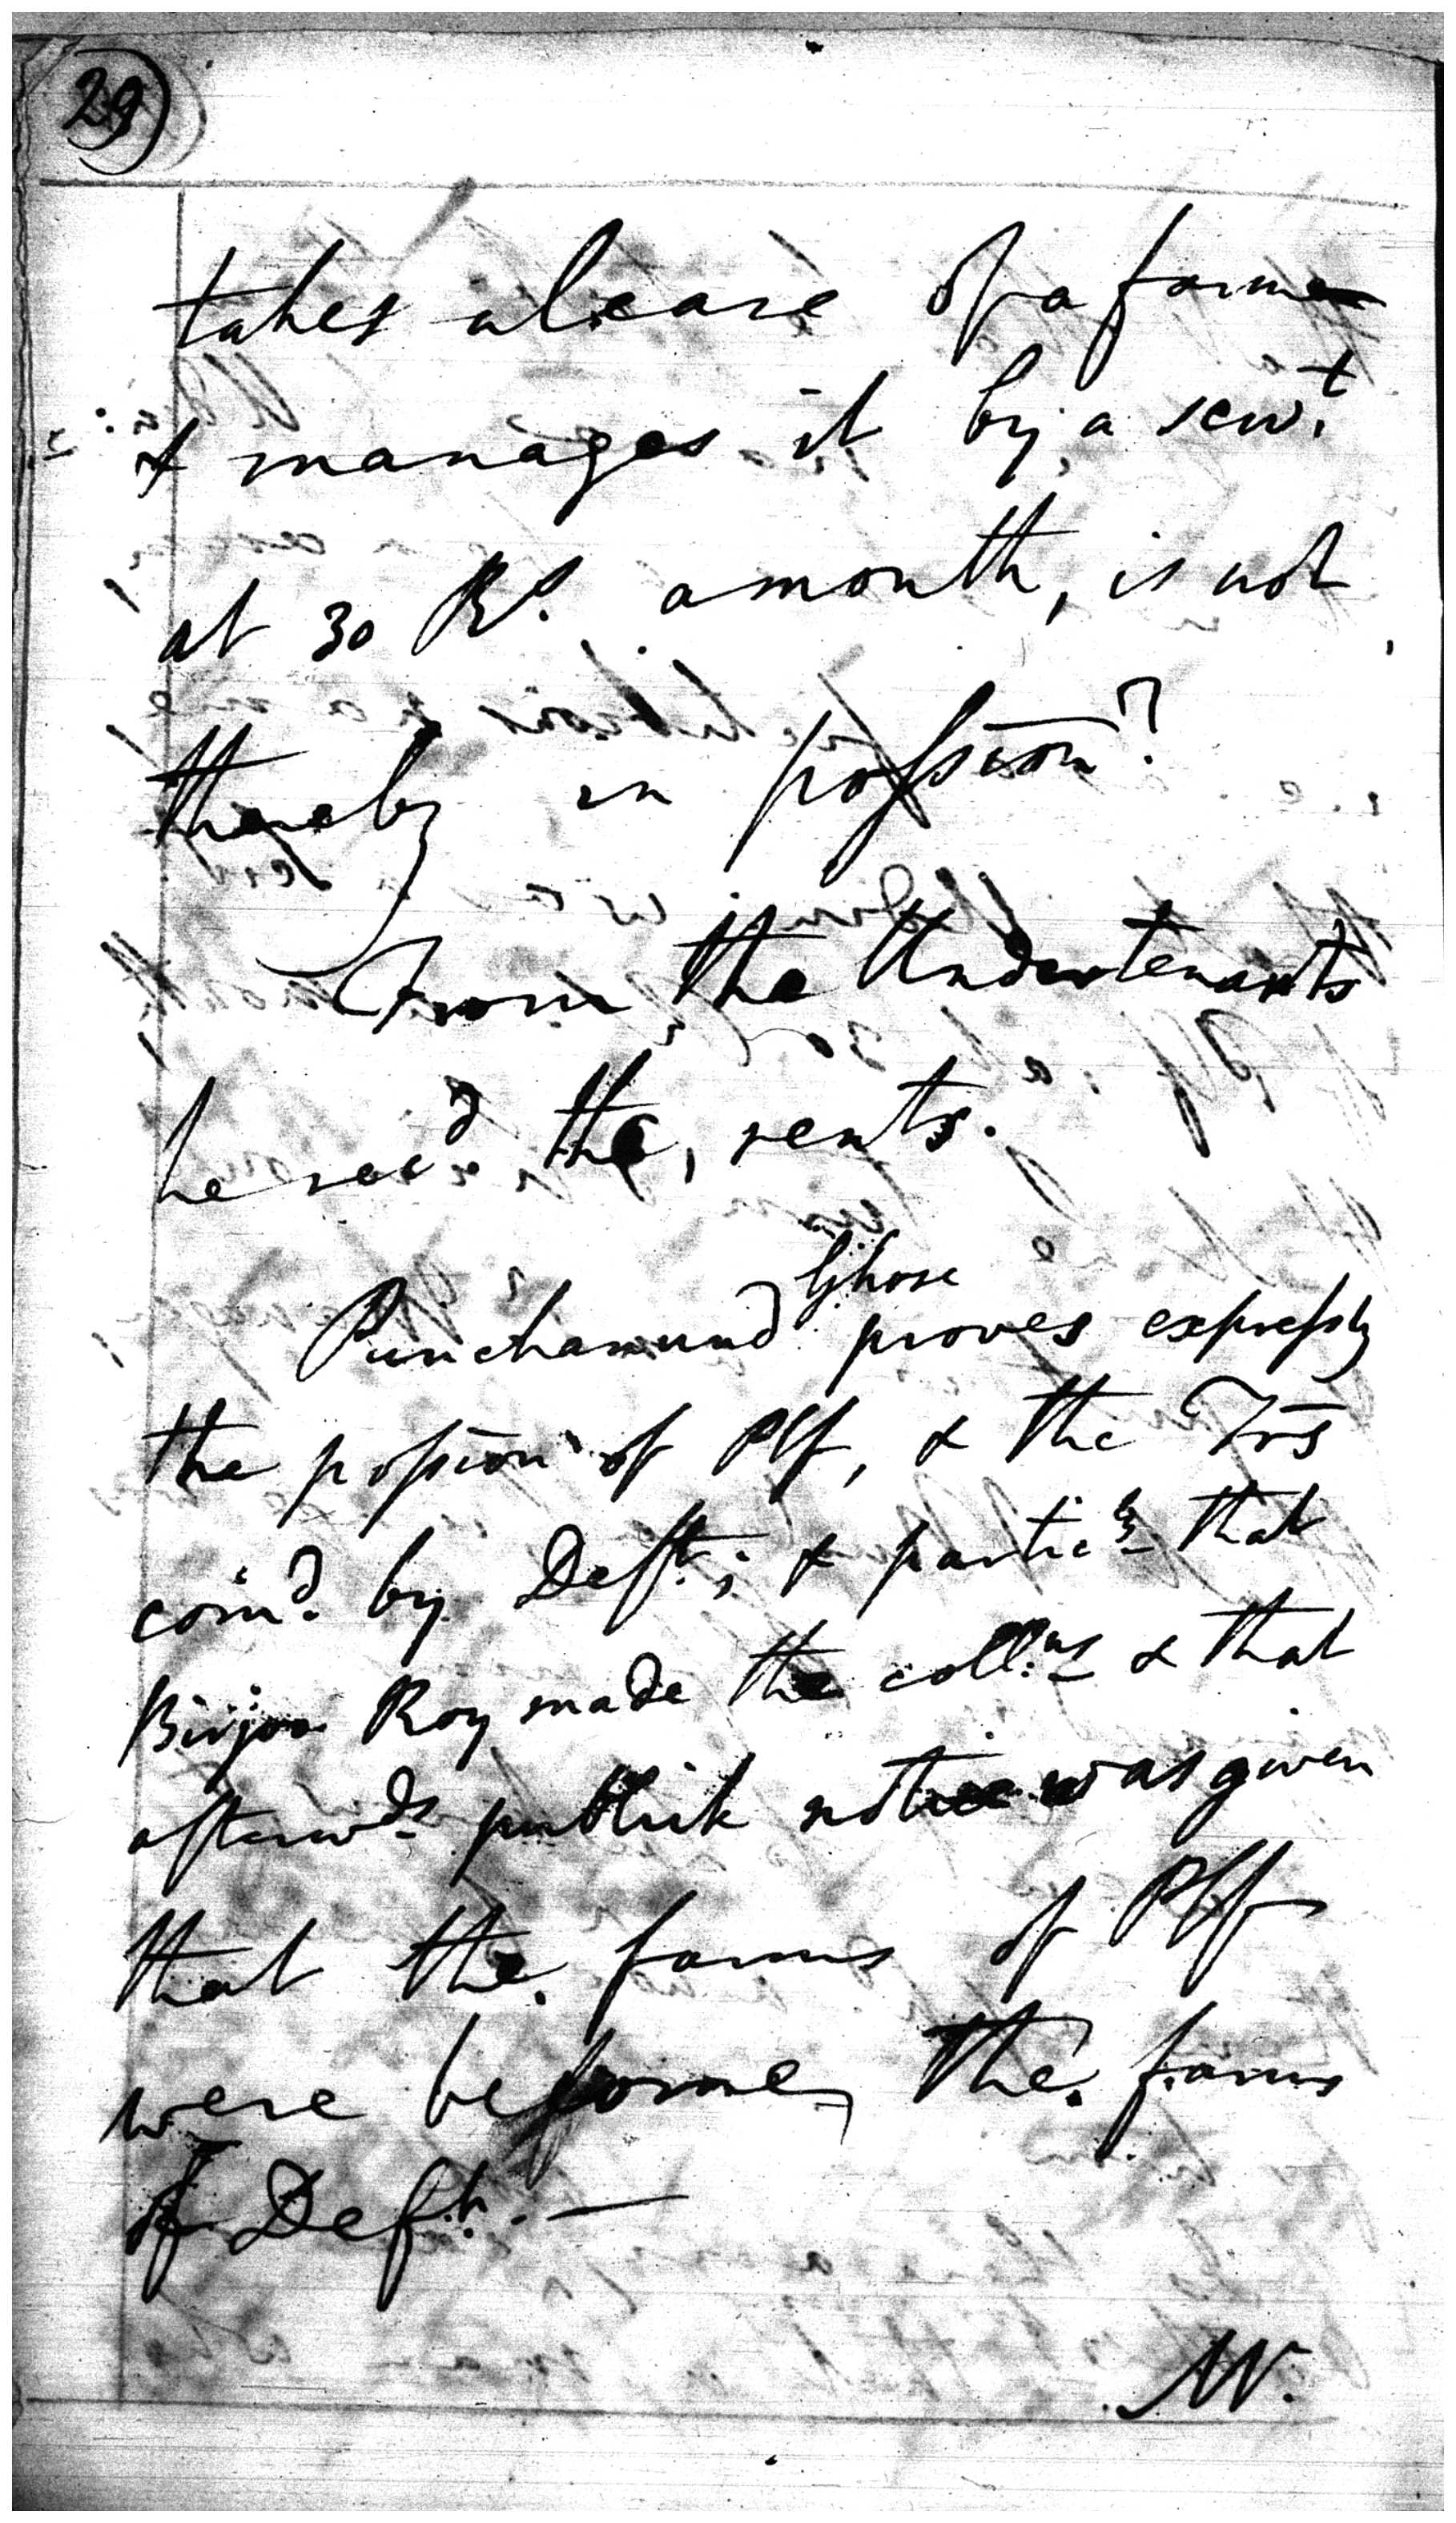 29
takes a lease of a farm
& manages it by a serv.t
at 30 Rs. a month, is not
thereby in possion?
From the Undertenants
he rec'd the rents.
Ghose
Punchanund proves expressly
the possion of Plf, & the Trs
com'd. by Deft.; & partic.ly that
Birjoo Roy made the coll:ns & that
afterwds publick notice was given
that the farms of Plff
were become the farms
of Deft. —
W.